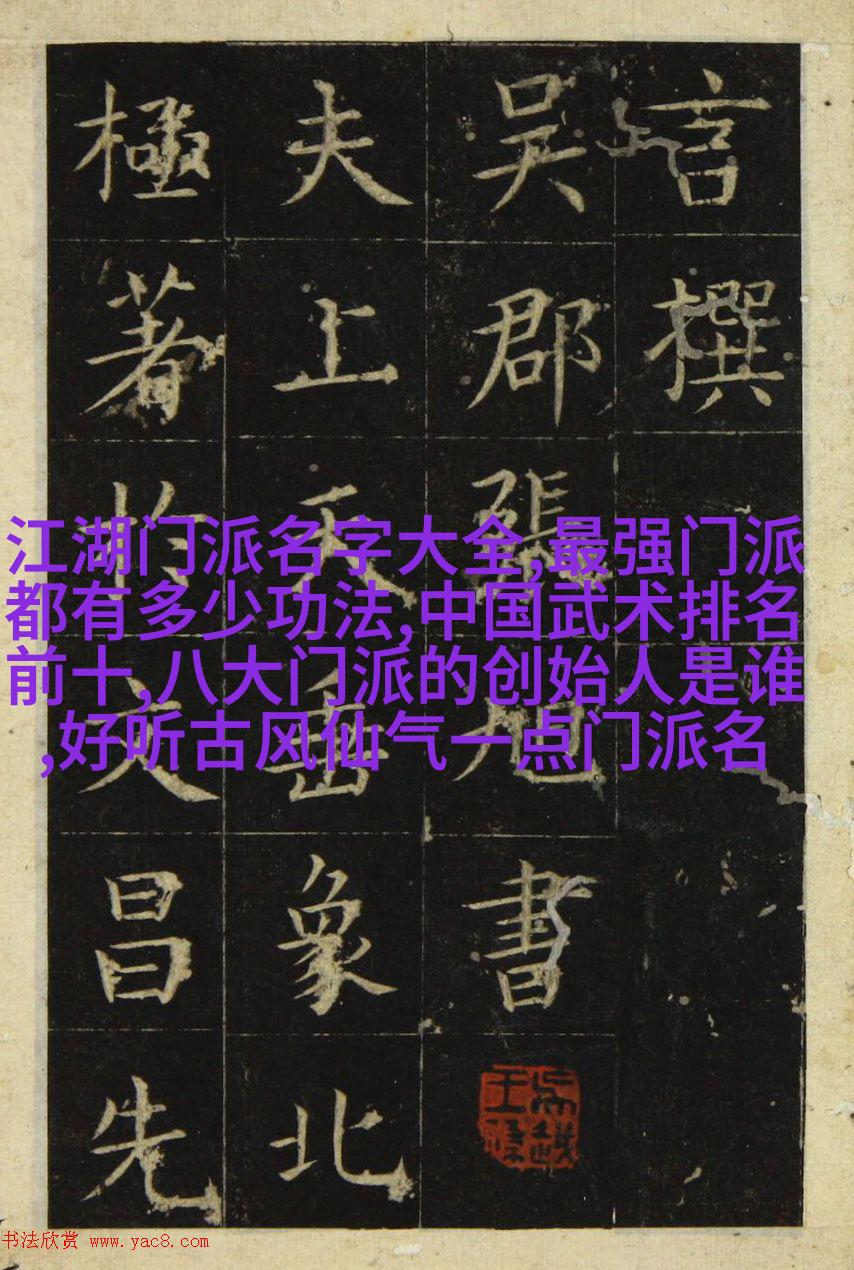 言撰
吴郡張旭書
夫上天垂象北
極著扵文昌先
江湖门派名字大全,最强门派
都有多少功法,中国武术排名
前十,八大门派的创始人是谁
,好听古风仙气一点门派名
书法欣赏 www.yac8.com